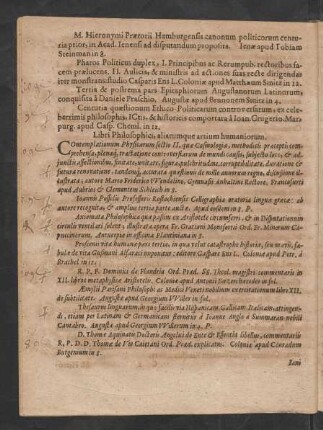 M. Hieronymi Prætorii Hamburgensis canonum politicorum centu-
ria prior, in Acad. Ienensi ad disputandum proposita. Ienæ apud Tobiam
Steinman in 8.
Pharus Politicus duplex, I. Principibus ac Rerumpub. rectoribus fa-
cem prælucens, II. Aulicis, & ministris ad actiones suas recte dirigendas
iter monstrans studio Caspari Ens. Coloniæ apud Marchum Smitz in 12.
Tertia & postrema pars Epitaphiorum Augustanorum Latinorum,
conquisita à Daniele Praschio. Augustæ apud in 4.
Centuria quæstionum Ethico Politicarum controversarum, ex cele-
berrimis philosophis, ICtis, & historicis comportata à Ioan Crügerio. Mar-
purg. apud Casp. Cheml. in 12.
Libri Philosophici, aliarumque artium humaniorum.
Contemplationum Physicarum sectio II, quæ Cosmologia, methodum & præcepta com-
prehensa, plenos tractatus de mundi causis, & ad-
junctis, antiquitate,
futura renovatione, tandem, accurata questione de
illustrata, autore Marco Friderico VVendelino, Gymnasii Anhaltini Rectore. Francofurti
apud Aubrios & Clementem Schleich in 8.
Ioannis Posselii Professoris Rostochiensis Calligraphia oratoria linguæ græcæ: ab
autore recognita, & amplius tertia parte aucta. Apud eosdem in 8. P.
Axiomata Philosophica quæ passim ex Aristotele circumferri, & in Disputationum
circulis ventilari solent, illustrata opera Fr. Gratiani Ord. Fr. Minorum Ca-
puccinorum. Antuerpiæ ex officina Plantiniana in 8.
Proscenii vitæ humanæ pars tertia, in qua relat catastrophe historiæ, seu mavis, fabu-
læ de vita Gusmani Alfaraci exponitur: editore Casparo Ens L. Coloniæ apud Petr. à
Brachel in 12.
R. P. F. Dominici de Flandria Ord. Præd. SS. Theol. magistri, commentarii in
XII. libros metaphysicæ Aristotelis. Coloniæ apud Antonium Boëtzerum in fol.
Parisani Philosophi ac Medici Veneti nobilium exercitationum libri XII.
de subtilitate. Augustæ apud Georgium VViller in fol.
Thesaurus linguarum in quo facilis via Hispanicam, Gallicam, Italicam attingen-
di, etiam per Latinam & Germanicam sternitur à Ioanne Angelo à Sumaran nobili
Cantabro. Augustæ apud Georgium VVillerum in 4. P.
D. Thomæ Aquinatis Doctoris Angelici de Ente & Essentia libellus, commentariis
R. P. D. D. Thomæ de Vio Caietani Ord. Præd. explicatus. Coloniæ apud Conradum
Butgenium in 8.
Iani